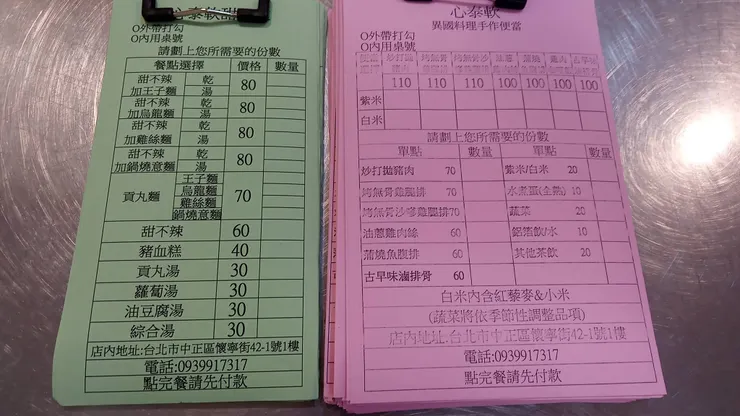 心泰軟甜
O外帶打勾
O內用桌號
請劃上您所需要的份數
餐點選擇 價格 數量
甜不辣 乾
加王子麵 湯 80
甜不辣 乾
加烏龍麵 湯 80
甜不辣 乾
加雞絲麵 湯 80
甜不辣 乾
加鍋燒意麵 湯 80
貢丸麵 王子麵 烏龍麵 雞絲麵 鍋燒意麵 70
甜不辣 60
豬血糕 40
貢丸湯 30
蘿蔔湯 30
油豆腐湯 30
綜合湯 30
店內地址:台北市中正區懷寧街42-1號1樓
電話:0939917317
點完餐請先付款
心泰軟
異國料理手作便當
O外帶打勾
O內用桌號
110 110 110 100 100 100 100
紫米
白米
請劃上您所需要的份數
單點 數量 單點 數量
炒打拋豬肉 70 紫米/白米 20
烤無骨雞腿排 70 水煮蛋(全熟) 10
烤無骨沙嗲雞腿排70 蔬菜 20
油蔥雞肉絲 60 鋁箔飲/水 10
蒲燒魚腹排 60 其他茶飲 20
古早味滷排骨 60
白米內含紅藜麥&小米
(蔬菜將依季節性調整品項)
店內地址:台北市中正區懷寧街42-1號1樓
電話:0939917317
點完餐請先付款